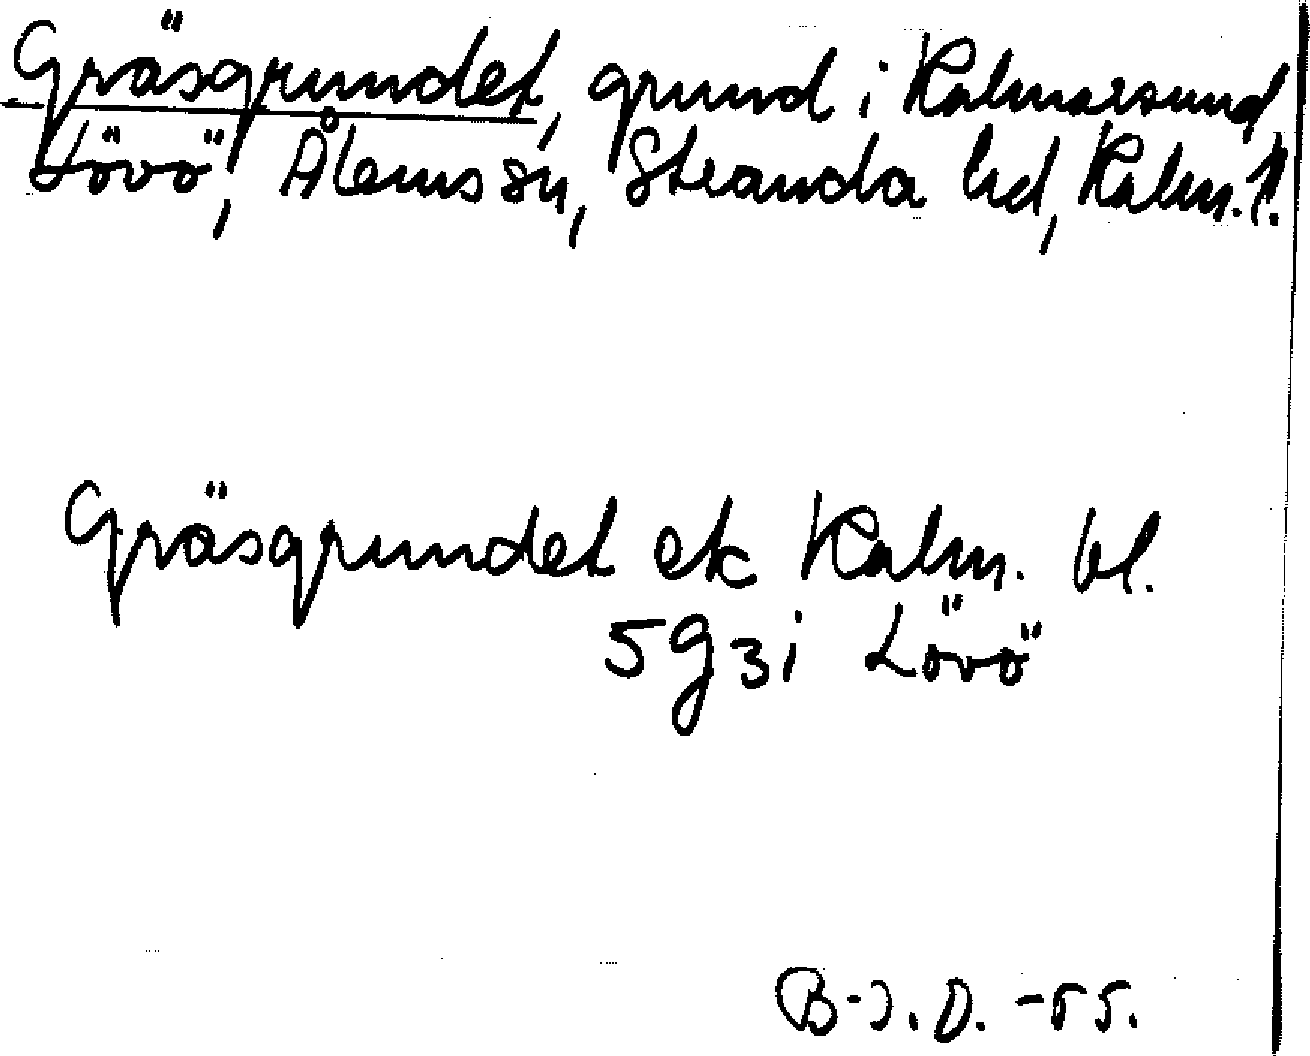 Gräsgrundet, grund i Kalmarsund
Lövö, Ålems sn, Stranda hd, Kalm. l.
Gräsgrundet ek Kalm. bl.
5g3i Lövö
B-J. D. -55.